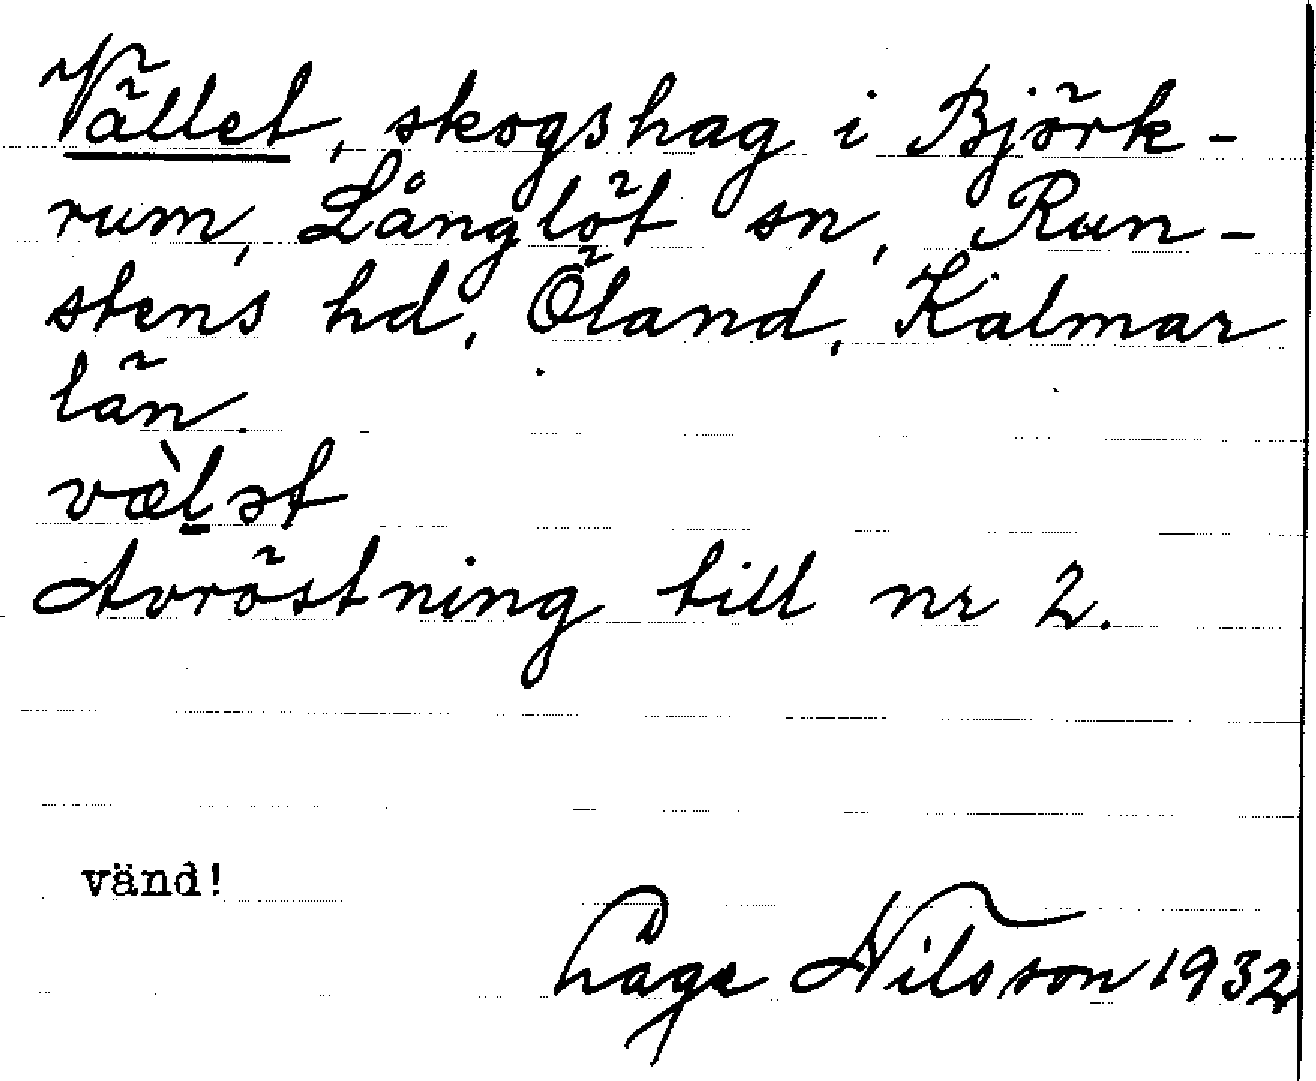 Vället, skogshag i Björk-
rum, Långlöt sn, Run-
stens hd, Öland, Kalmar
län.
væ̀l̠ət
Avröstning till nr 2.
vänd!
Låge Nilsson 1932